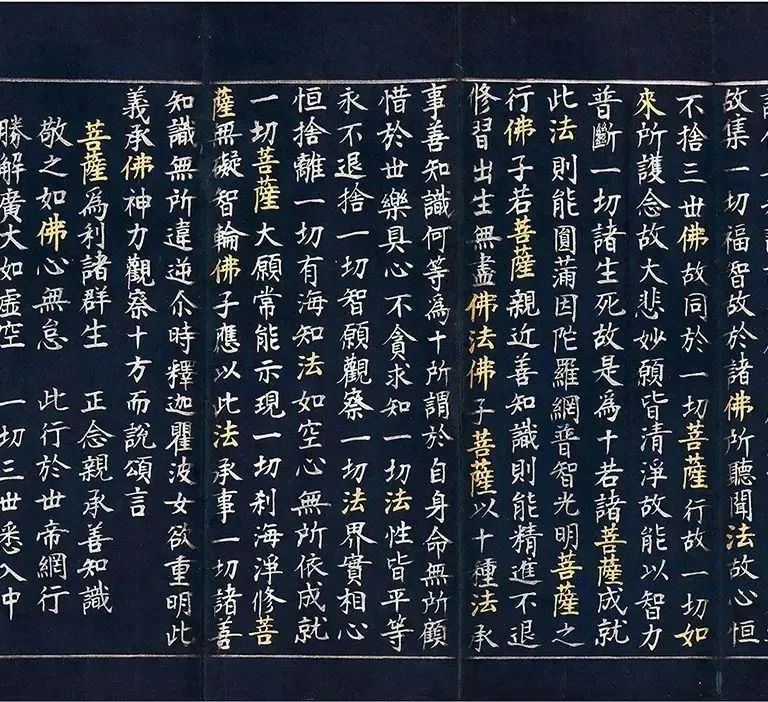 故集一切福智故於諸佛所聽聞法故心恒
不捨三丗佛故同於一切菩薩行故一切如
來所護念故大悲妙願皆清淨故能以智力
普斷一切諸生死故是爲十若諸菩薩成就
此法則能圓蒲因陁羅網普智光明菩薩之
行佛子若菩薩親近善知識則能精進不退
修習出生無盡佛法佛子菩薩以十種法承
事善知識何等爲十所謂於自身命無所顧
惜於丗樂具心不貪求知一切法性皆平等
永不退捨一切智願觀察一切法界實相心
恒捨離一切有海知法如空心無所依成就
一切菩薩大願常能示現一切刹海淨修菩
薩無礙智輪佛子應以此法承事一切諸善
知識無所違逆尒時釋迦瞿波女欲重明此
義承佛神力觀察十方而說頌言
菩薩爲利諸群生 正念親承善知識
敬之如佛心無怠 此行於丗帝網行
勝解廣大如虛空 一切三丗悉入中